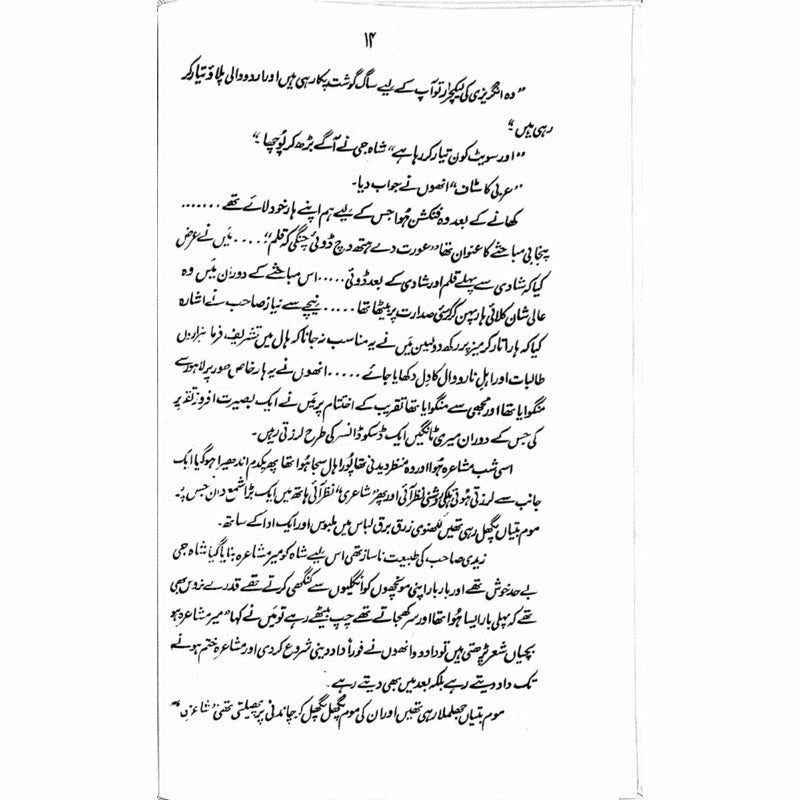 ۱۴
”وہ انگریزی کی لیکچرار تو آپ کے لیے ساگ گوشت پکا رہی ہیں اور اردو والی پلاؤ تیار کر
رہی ہیں۔“
”اور سویٹ کون تیار کر رہا ہے“ شاہ جی نے آگے بڑھ کر پُوچھا۔“
”عربی کا سٹاف“ انھوں نے جواب دیا۔
کھانے کے بعد وہ فنکشن ہُوا جس کے لیے ہم اپنے ہار خود لائے تھے.......
پنجابی مباحثے کا عنوان تھا ”عورت دے ہتھ وچ ڈوئی چنگی کہ قلم“؛.... میں نے عرض
کیا کہ شادی سے پہلے قلم اور شادی کے بعد ڈوئی..... اس مباحثے کے دوران میں وہ
عالی شان کلائی ہار پہن کر کرسئی صدارت پر بیٹھا تھا..... نیچے سے نیاز صاحب نے اشارہ
کیا کہ ہار اتار کر میز پر رکھ دو لیکن میں نے یہ مناسب نہ جانا کہ ہال میں تشریف فرما ہزاروں
طالبات اور اہلِ نارووال کا دِل دکھایا جائے..... انھوں نے یہ ہار خاص طور پر لاہور سے
منگوایا تھا اور مجھی سے منگوایا تھا تقریب کے اختتام پر میں نے ایک بصیرت افروز تقریر
کی جس کے دوران میری ٹانگیں ایک ڈسکو ڈانسر کی طرح لرزتی رہیں۔
اسی شب مشاعرہ ہُوا اور وہ منظر دیدنی تھا پُورا ہال سجا ہُوا تھا پھر یکدم اندھیرا ہو گیا ایک
جانب سے لرزتی ہُوئی ہلکی روشنی نظر آئی اور پھر ”شاعری“ نظر آئی ہاتھ میں ایک بڑا شمع دان جس پر
موم بتیاں پگھل رہی تھیں لکھنوی زرق برق لباس میں ملبوس اور ایک ادا کے ساتھ۔
زیدی صاحب کی طبیعت ناساز تھی اس لیے شاہ کو میرِ مشاعرہ بنایا گیا شاہ جی
بے حد خوش تھے اور بار بار اپنی مونچھوں کو انگلیوں سے کنگھی کرتے تھے قدرے نروس بھی
تھے کہ پہلی بار ایسا ہُوا تھا اور سر کھجاتے تھے چپ بیٹھے رہے تو میں نے کہا ”میرِ مشاعرہ ہو
بچیاں شعر پڑھتی ہیں تو داد دو انھوں نے فوراً داد دینی شروع کر دی اور مشاعرہ ختم ہونے
تک داد دیتے رہے بلکہ بعد میں بھی دیتے رہے۔
موم بتیاں جھلملا رہی تھیں اور ان کی موم پگھل پگھل کر چاندنی پر پھیلتی تھی